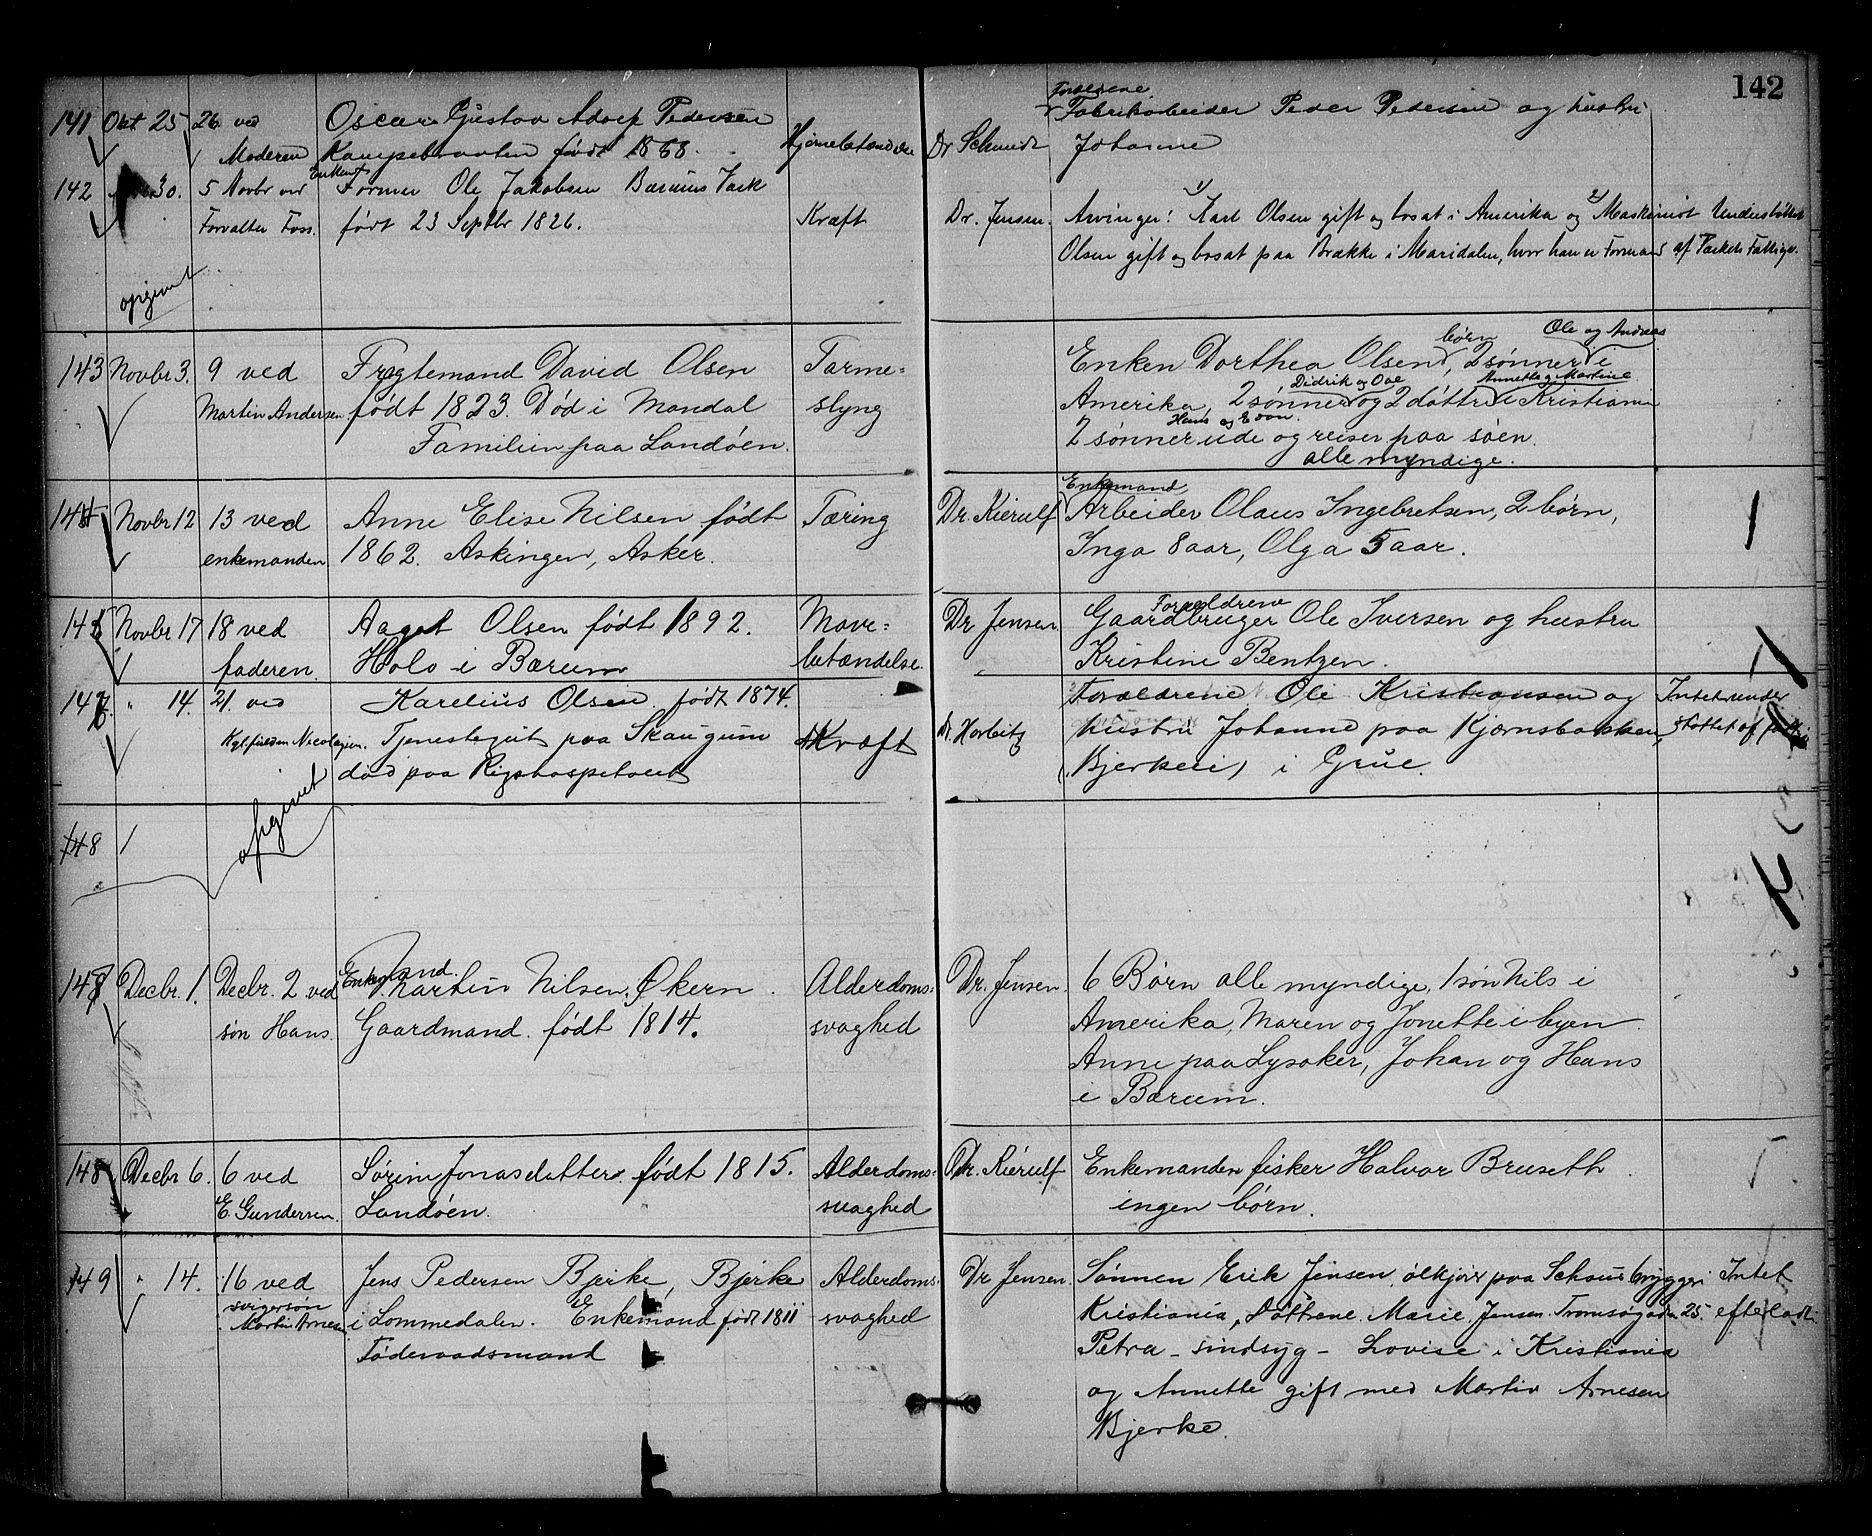 142
141 Okt 25 26 ved Oscar Gustav Adolf Pedersen Hjernebetændelse Dr Schmidt Forældrene Fabrikarbeider Peder Pedersen og hustru
Moderen Kampebraaten født 1888. Johanne
142 30. 5 Novbr ved Enkem. Former Ole Jakobsen Bærums Værk Kræft Dr. Jensen. Arvinger: 1) Karl Olsen gift og bosat i Amerika og 2) Maskinist Understøttet
Forvalter Foss. født 23 Septbr 1826. Olsen gift og bosat paa Brække i Maridalen, hvor han er Formand af Værkets Fattigv.
opgivet
143 Novbr 3. 9 ved Fragtemand David Olsen Tarme= Enken Dorthea Olsen, børn 2 sønner Ole og Andreas i
Martin Andersen. født 1823. Død i Mandal slyng Amerika, 2 sønner Didrik og Ove og 2 døttre Annette og Martine i Kristiania
Familien paa Landøen. 2 sønner Hans og Edv. ude og reiser paa søen.
alle myndige.
144 Novbr 12 13 ved Anne Elise Nilsen født Tæring Dr. Kierulf Enkemand Arbeider Olaus Ingebretsen, 2 børn,
enkemanden 1862. Askingen, Asker. Inga 8 aar, Olga 5 aar.
145 Novbr 17 18 ved Aagot Olsen født 1892. Mave= Dr Jensen. Forældrene Gaardbruger Ole Iversen og hustru
faderen. Holo i Bærum betændelse. Kristine Bentzen.
147. " 14. 21. ved Karelius Olsen født 1874. Kræft Dr. Horbitz Forældrene Ole Kristiansen og Intet under
Nicolaysen. Tjenestegut paa Skaugum hustru Johanne paa Kjernsbakken, støttet af
død paa Rigshospitalet (Bjerkeie) i Grue.
opgivet
148
148 Decbr. 1. Decbr. 2 ved Enkemand. Martin Nilsen Økern Alderdoms= Dr. Jensen. 6 Børn alle myndige, 1 søn Nils i
søn Hans. Gaardmand. født 1814. svaghed Amerika, Maren og Jonette i byen
Anne paa Lysaker, Johan og Hans
i Bærum.
148 Decbr 6. 6 ved Sørine Jonasdatter født 1815. Alderdoms= Dr. Kierulf Enkemanden fisker Halvor Bruseth
E. Gundersen. Landøen. svaghed ingen børn.
149 " 14. 16 ved Jens Pedersen Bjerke, Bjerke Alderdoms= Dr Jensen. Sønnen Erik Jensen ølkjører paa Schous bryggeri Intet
svigersøn Martin Arnesen i Lommedalen. Enkemand født 1811 svaghed Kristiania, Døttrene Marie Jensen Tromsøgaden 25. efterladt.
Føderaadsmand Petra - sindsyg - Lovise i Kristiania
og Annette gift med Martin Arnesen
Bjerke.